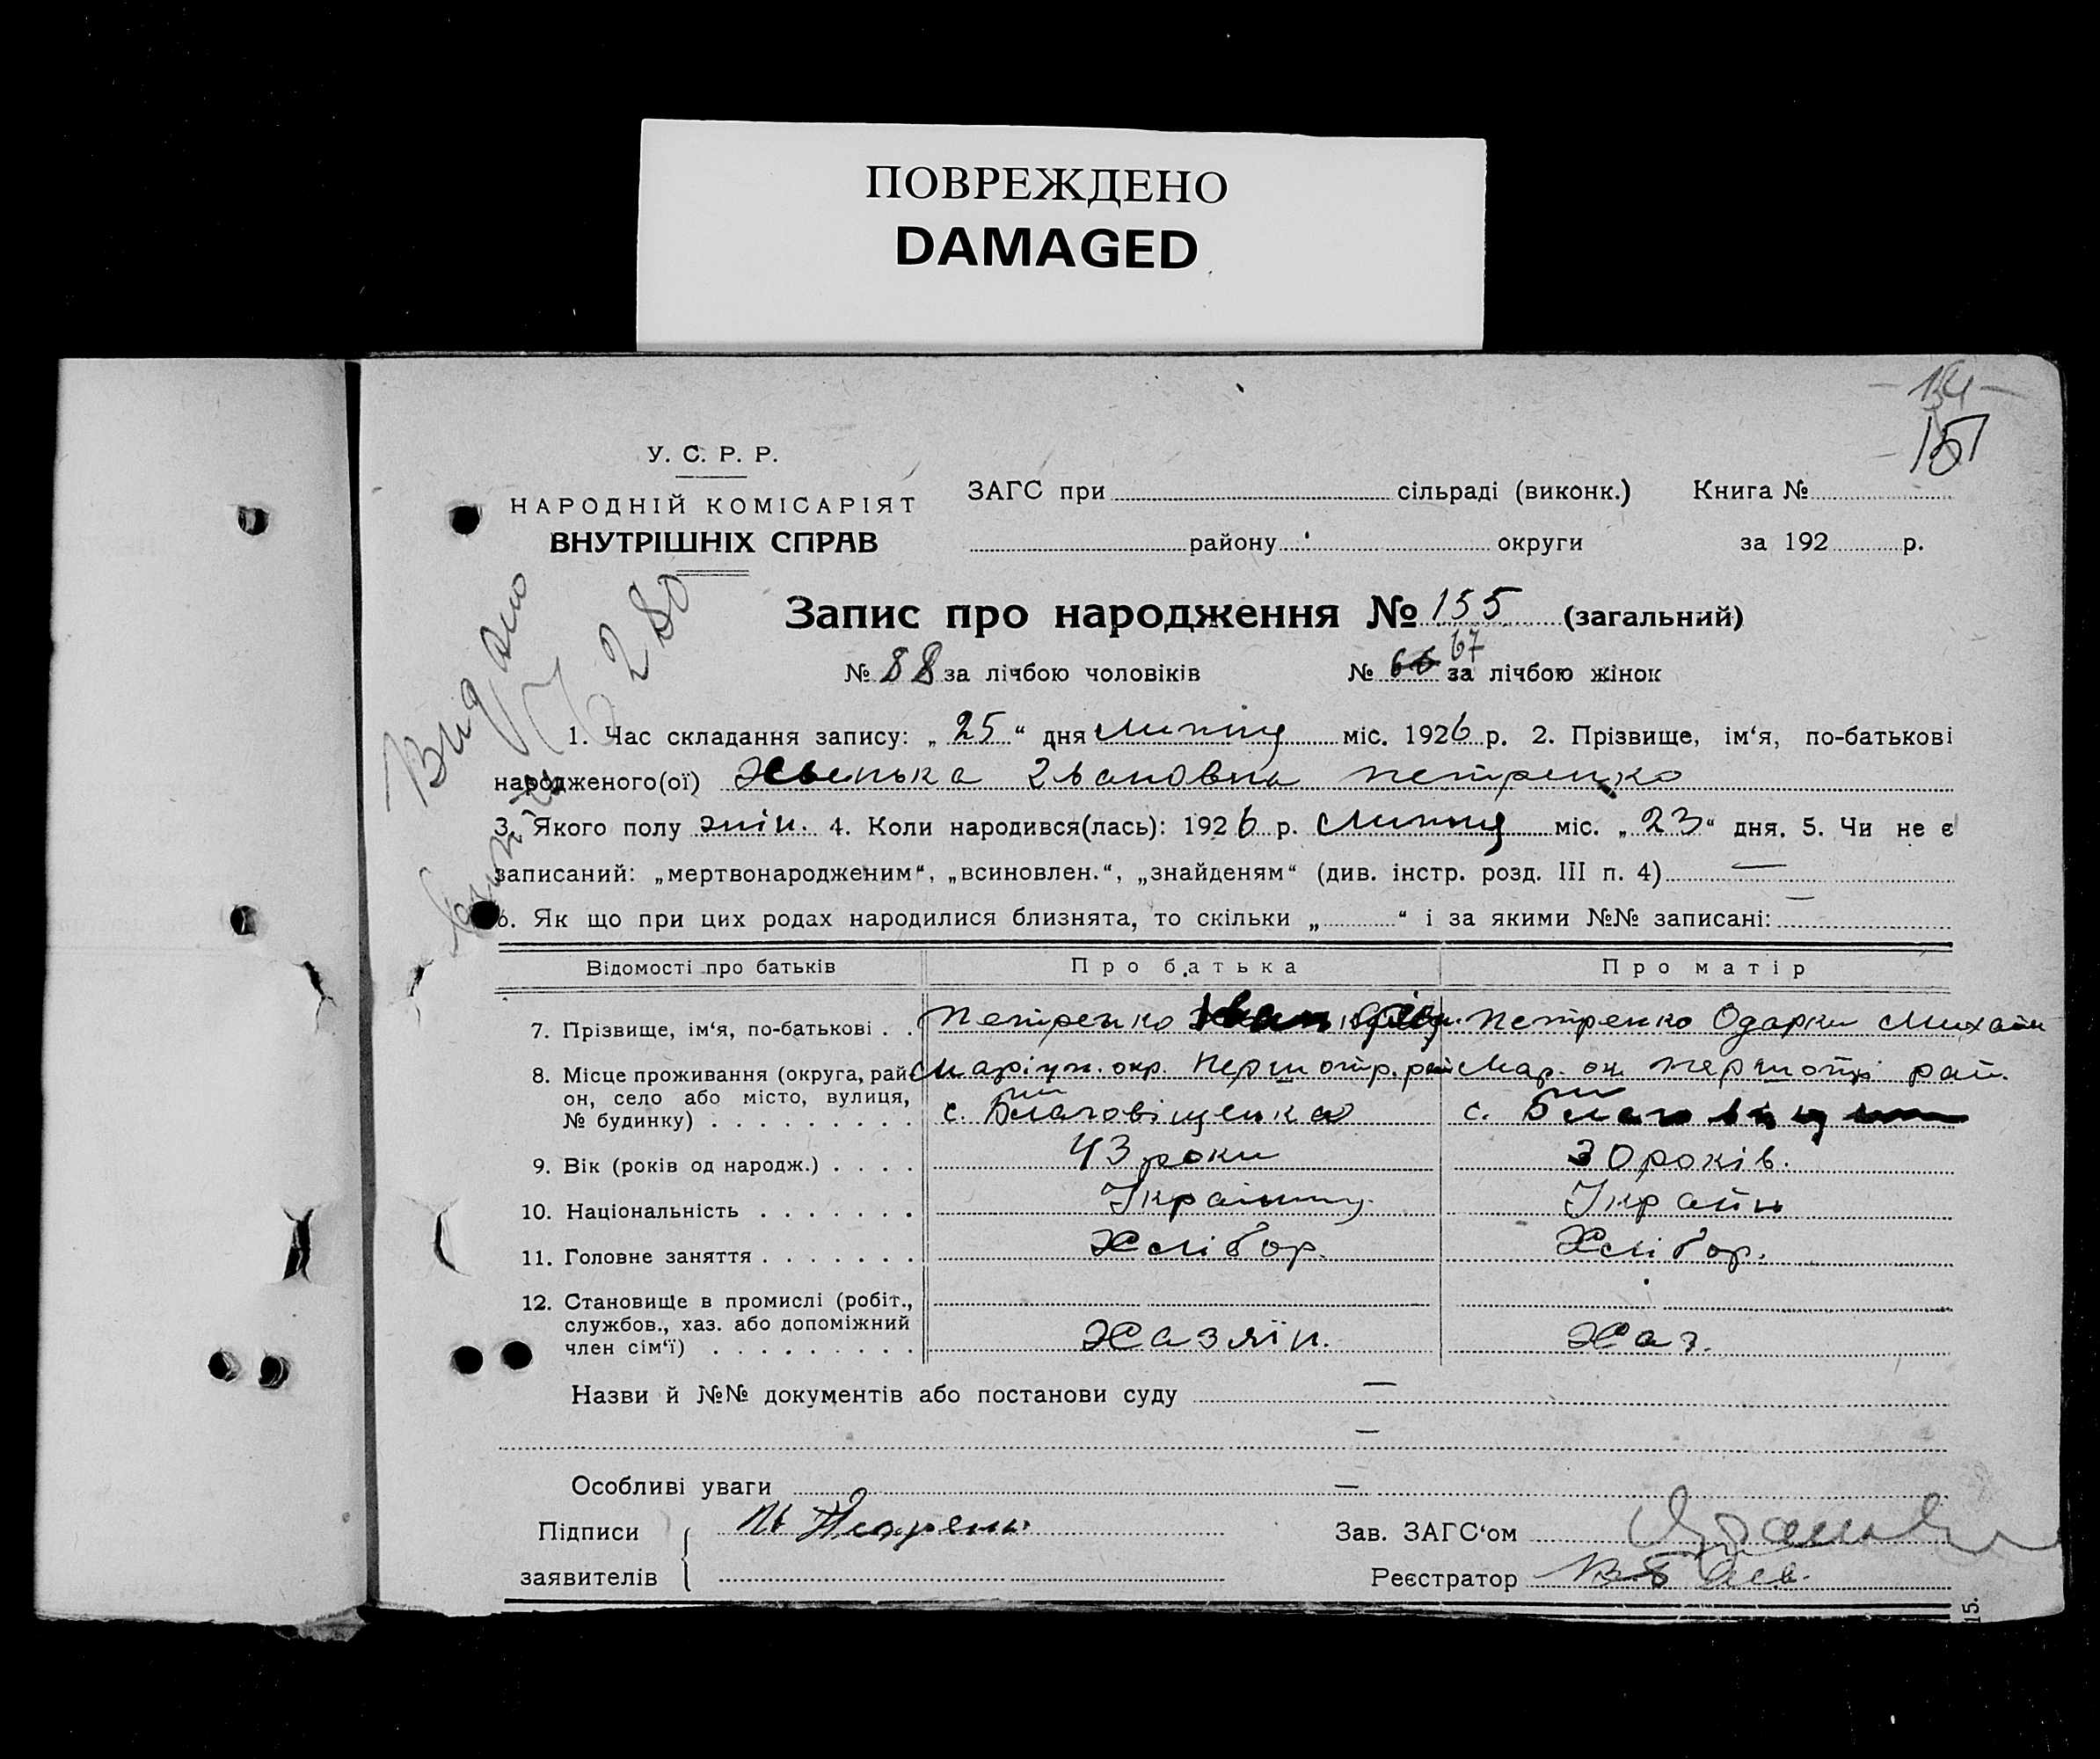 ПОВРЕЖДЕНО
DAMAGED
154
151
У. С. Р. Р.
НАРОДНІЙ КОМІСАРІЯТ
ВНУТРІШНІХ СПРАВ
ЗАГС при сільраді (виконк.) Книга №
району округи за 192 р.
Запис про народження № 155 (загальний)
№ 88 за лічбою чоловіків № 66 67 за лічбою жінок
Видано
1. Час складання запису: „ 25 “ дня липня міс. 1926 р. 2. Прізвище, ім‘я, по-батькові
народженого(ої) Івановна петренко
3. Якого полу жін. 4. Коли народився(лась): 1926 р. липня міс. „ 23 “ дня. 5. Чи не є
записаний: „мертвонародженим“, „всиновлен.“, „знайденям“ (див. інстр. розд. III п. 4) —
6. Як що при цих родах народилися близнята, то скільки „ “ і за якими №№ записані: —
Відомості про батьків Про батька Про матір
7. Прізвище, ім‘я, по-батькові . . Петренко Іван Петренко Одарки Михайл
8. Місце проживання (округа, рай- Маріуп. окр. Першотр. рай Мар. ок першотр рай.
он, село або місто, вулиця, с. Благовіщенка с.
№ будинку) . . . . . . . . .
9. Вік (років од народж.) . . . . 43 роки 30 років.
10. Національність . . . . . . . Українец Україн
11. Головне заняття . . . . . . . Хлібор. Хлібор.
12. Становище в промислі (робіт.,
службов., хаз. або допоміжний
член сім‘ї) . . . . . . . . . Хазяїн. Хаз.
Назви й №№ документів або постанови суду —
—
Особливі уваги —
Підписи
заявителів
Зав. ЗАГС‘ом
Реєстратор
15.